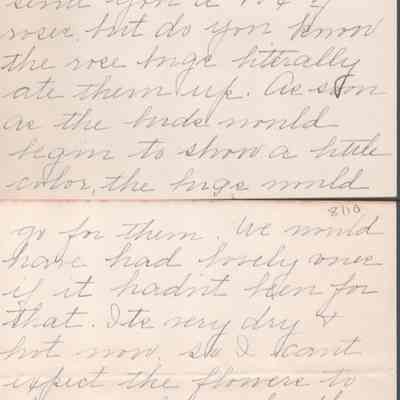 send you a
roses, but do you know
the rose bugs literally
ate them up. As soon
as the buds would
begin to show a little
color, the bugs would
8/10
go for them. We would
have had lovely ones
if it hadn't been for
that. Its very dry &
hot now, so I cant
expect the flowers to